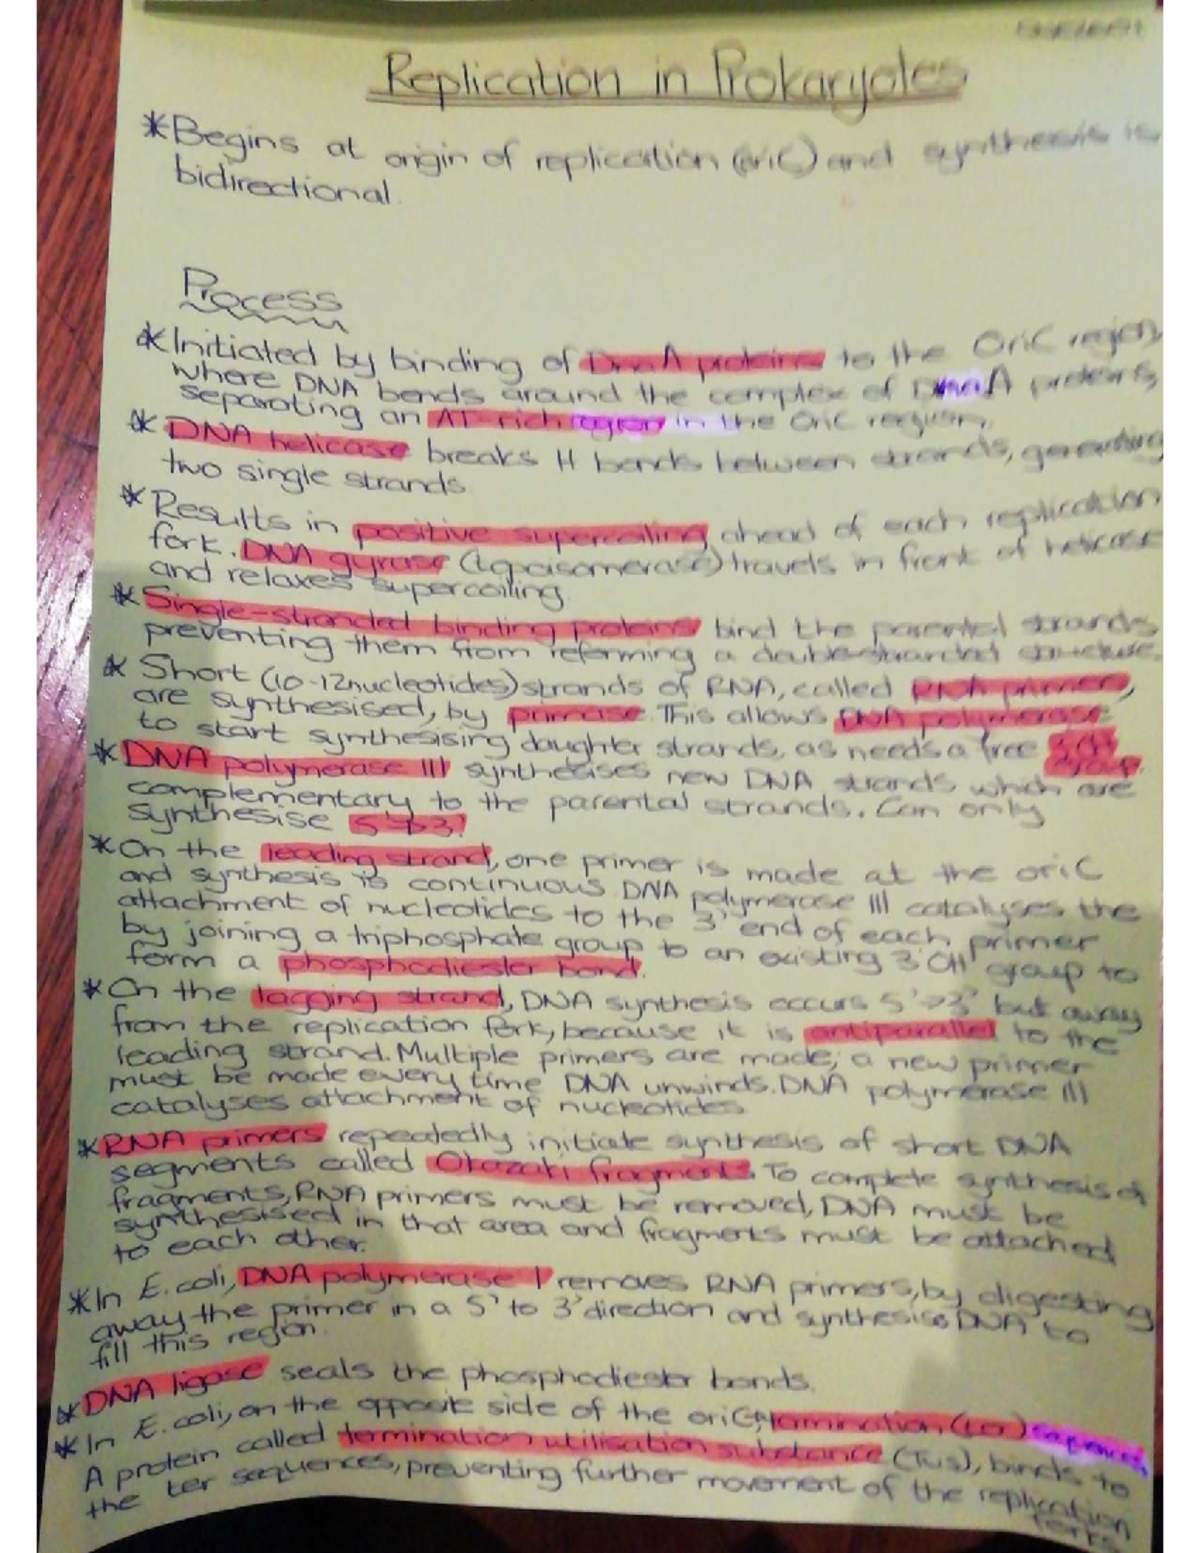 Replication in Prokaryotes
*Begins at origin of replication (oriC) and synthesis is
bidirectional.
Process
*Initiated by binding of DnaA proteins to the OriC region,
where DNA bends around the complex of DnaA proteins,
separating an AT-rich region in the OriC region.
*DNA helicase breaks H bonds between strands, generating
two single strands.
*Results in positive supercoiling ahead of each replication
fork. DNA gyrase (topoisomerase) travels in front of helicase
and relaxes supercoiling.
*Single-stranded binding proteins bind the parental strands
preventing them from reforming a double-stranded structure.
*Short (10-12nucleotides) strands of RNA, called RNA primers,
are synthesised, by primase. This allows DNA polymerase
to start synthesising daughter strands, as needs a free 3'OH
group.
*DNA polymerase III synthesises new DNA strands which are
complementary to the parental strands. Can only
synthesise 5'→3'.
*On the leading strand, one primer is made at the oriC
and synthesis is continuous. DNA polymerase III catalyses the
attachment of nucleotides to the 3' end of each primer
by joining a triphosphate group to an existing 3'OH group to
form a phosphodiester bond.
*On the lagging strand, DNA synthesis occurs 5'→3' but away
from the replication fork, because it is antiparallel to the
leading strand. Multiple primers are made; a new primer
must be made every time DNA unwinds. DNA polymerase III
catalyses attachment of nucleotides.
*RNA primers repeatedly initiate synthesis of short DNA
segments called Okazaki fragments. To complete synthesis of
fragments, RNA primers must be removed, DNA must be
synthesised in that area and fragments must be attached
to each other.
*In E.coli, DNA polymerase I removes RNA primers, by digesting
away the primer in a 5' to 3' direction and synthesises DNA to
fill this region.
*DNA ligase seals the phosphodiester bonds.
*In E.coli, on the opposite side of the oriC, termination (ter) sequences.
A protein called termination utilisation substance (Tus), binds to
the ter sequences, preventing further movement of the replication
forks.